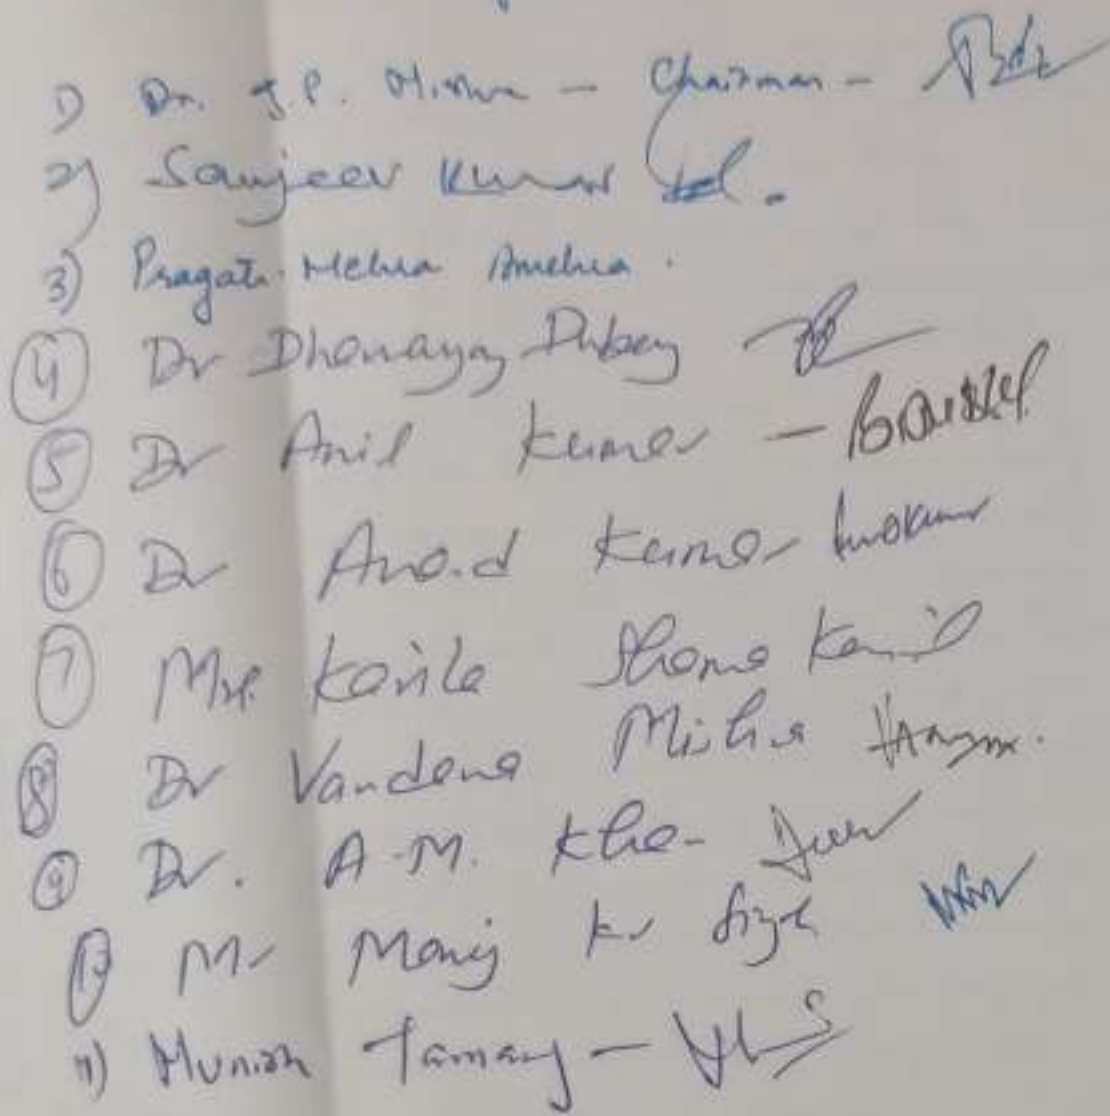 1) Dr. J.P. Mishra - Chairman -
2) Sanjeev Kumar
3) Pragati Mehra Amehra.
4 Dr Dhananjay Dubey
5 Dr Anil Kumar -
6 Dr Anand Kumar
7 Mrs. Kavita Sharma
8 Dr Vandana Mishra
9 Dr. A.M. Khan
10 Mr Manoj Kr Singh
11) Munish Tamang -